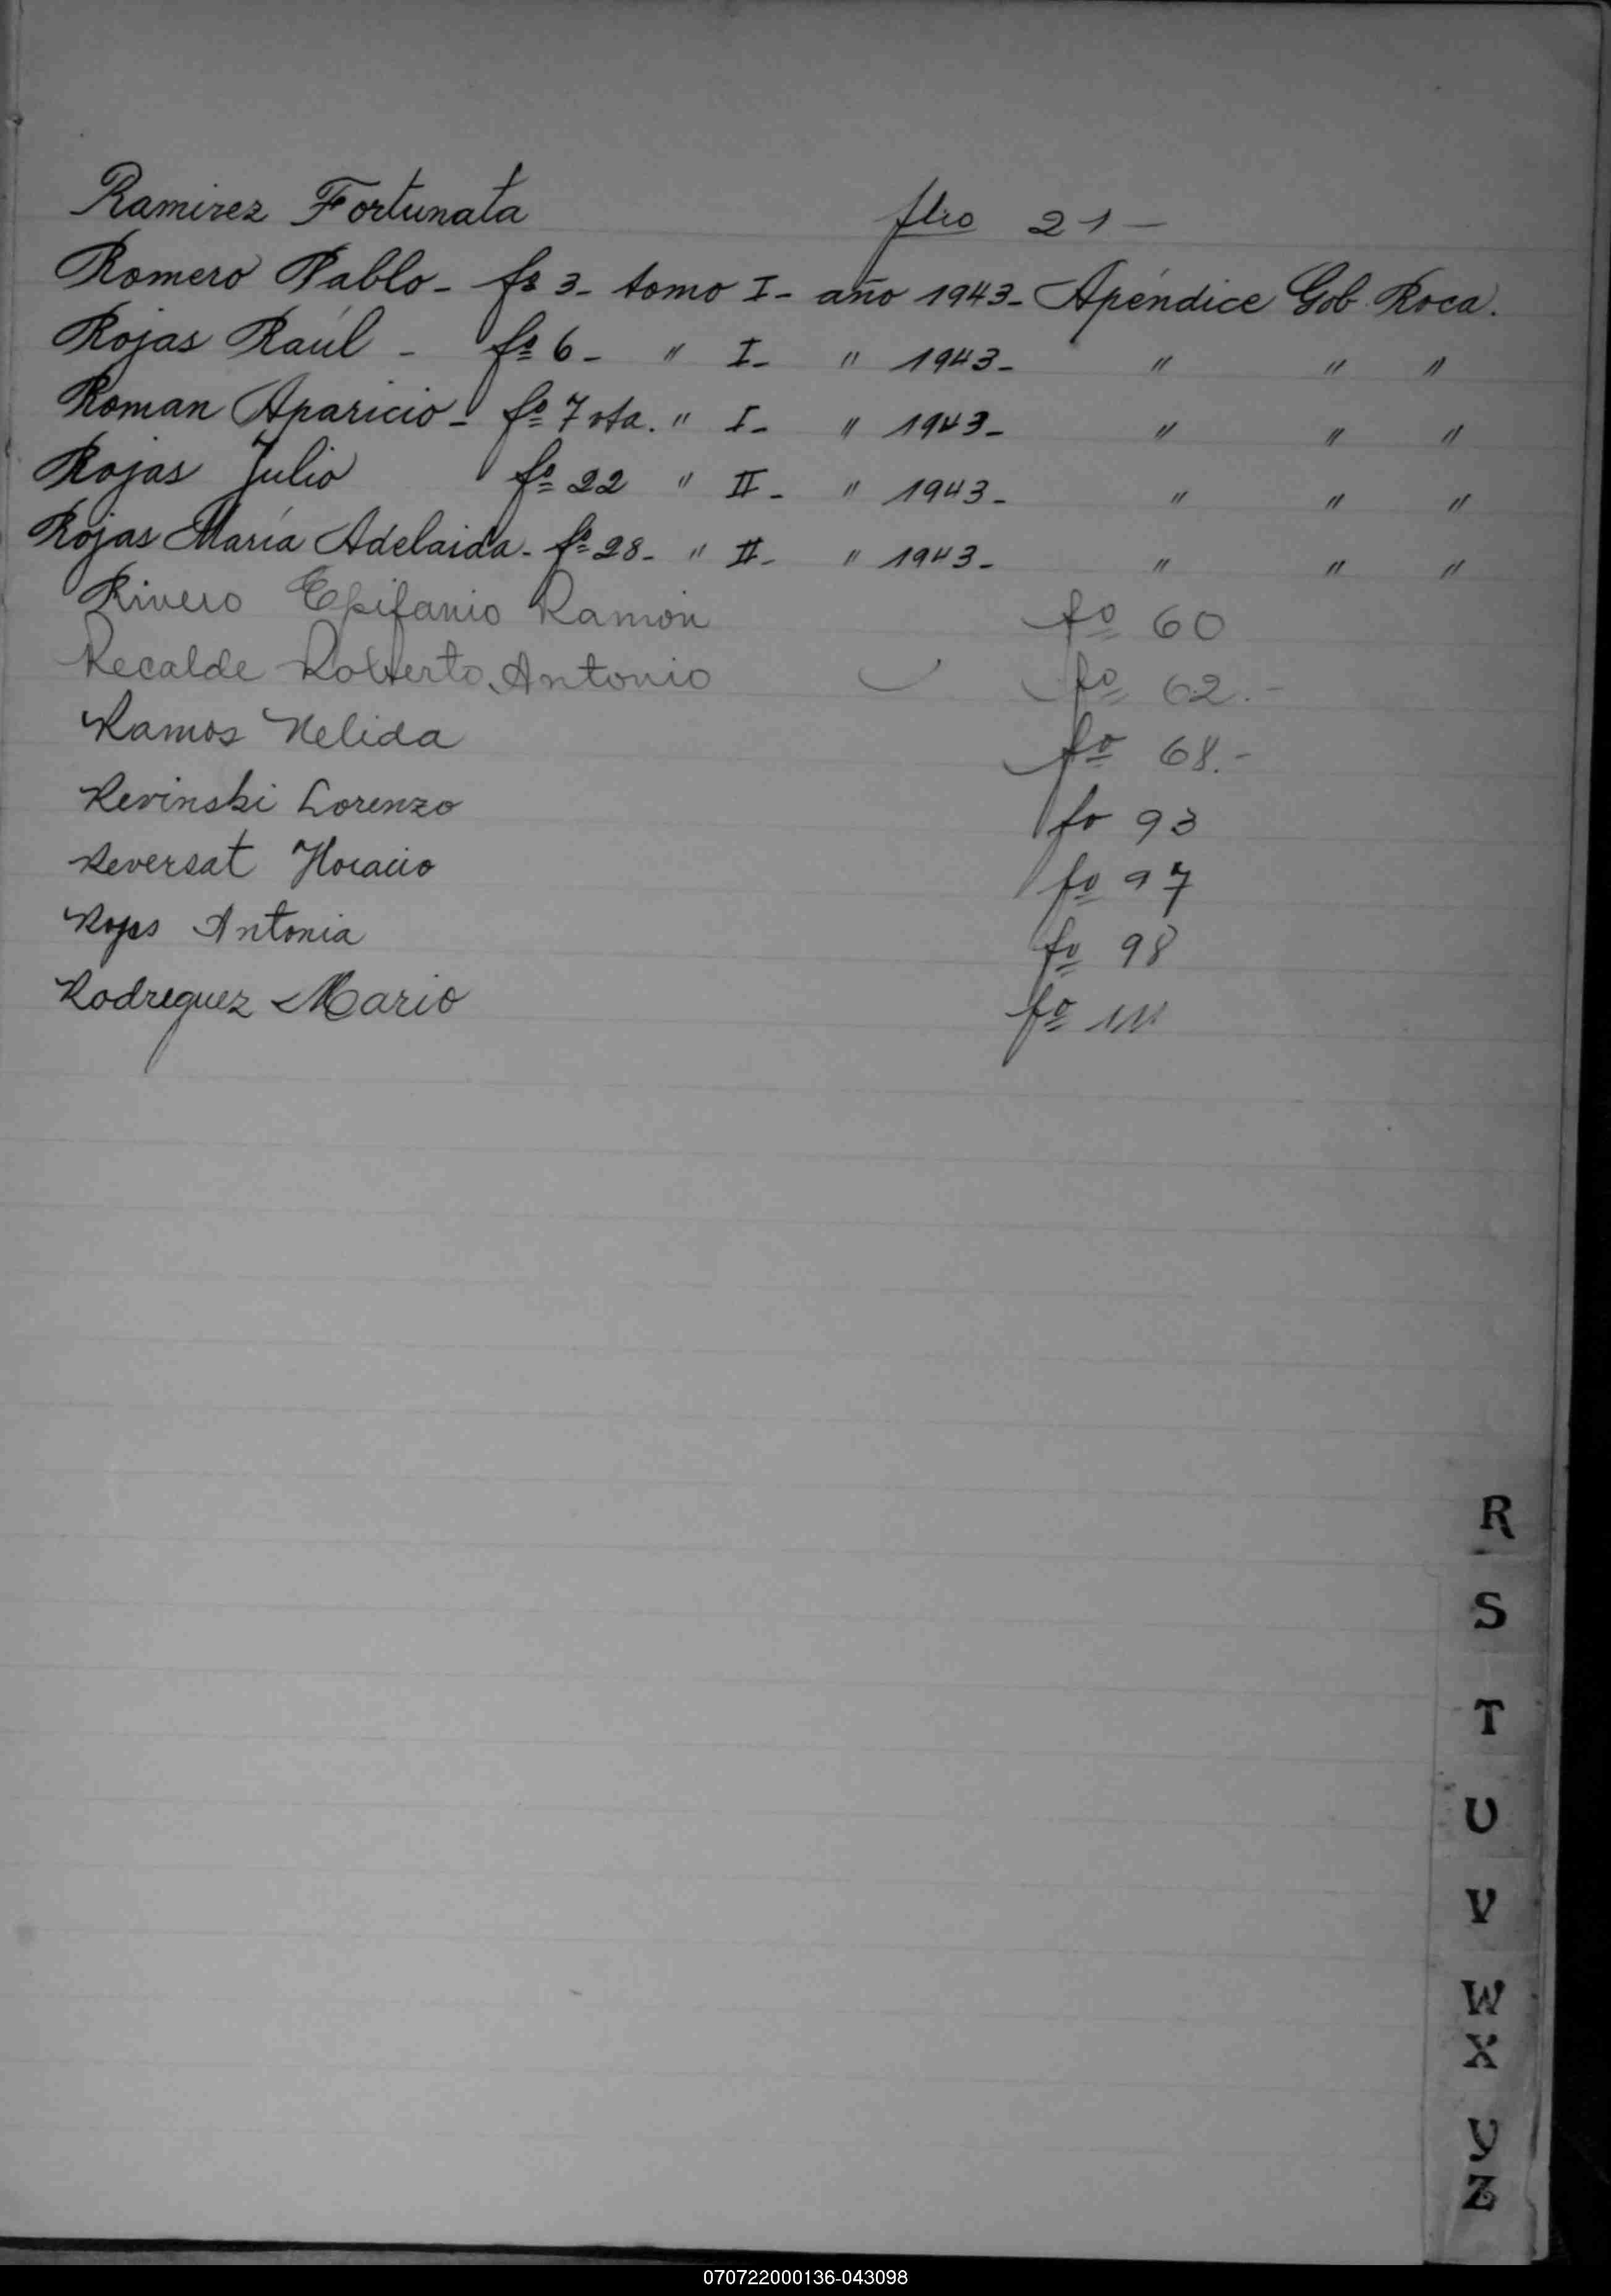 Ramirez Fortunata flio 21 —
Romero Pablo - fº 3 - tomo I - año 1943 - Apéndice Gob. Roca.
Rojas Raúl - fº 6 - " I - " 1943 - " " "
Roman Aparicio - fº 7 vta. " I - " 1943 - " " "
Rojas Julio fº 22 " II - " 1943 - " " "
Rojas María Adelaida - fº 28 - " II - " 1943 - " " "
Rivero Epifanio Ramón fº 60
Recalde Roberto Antonio fº 62.-
Ramos Nelida fº 68.-
Revinski Lorenzo fo 93
Reversat Horacio fº 97
Antonia fº 98
Rodreguez Mario fº 111
R
S
T
U
V
W
X
Y
Z
070722000136-043098